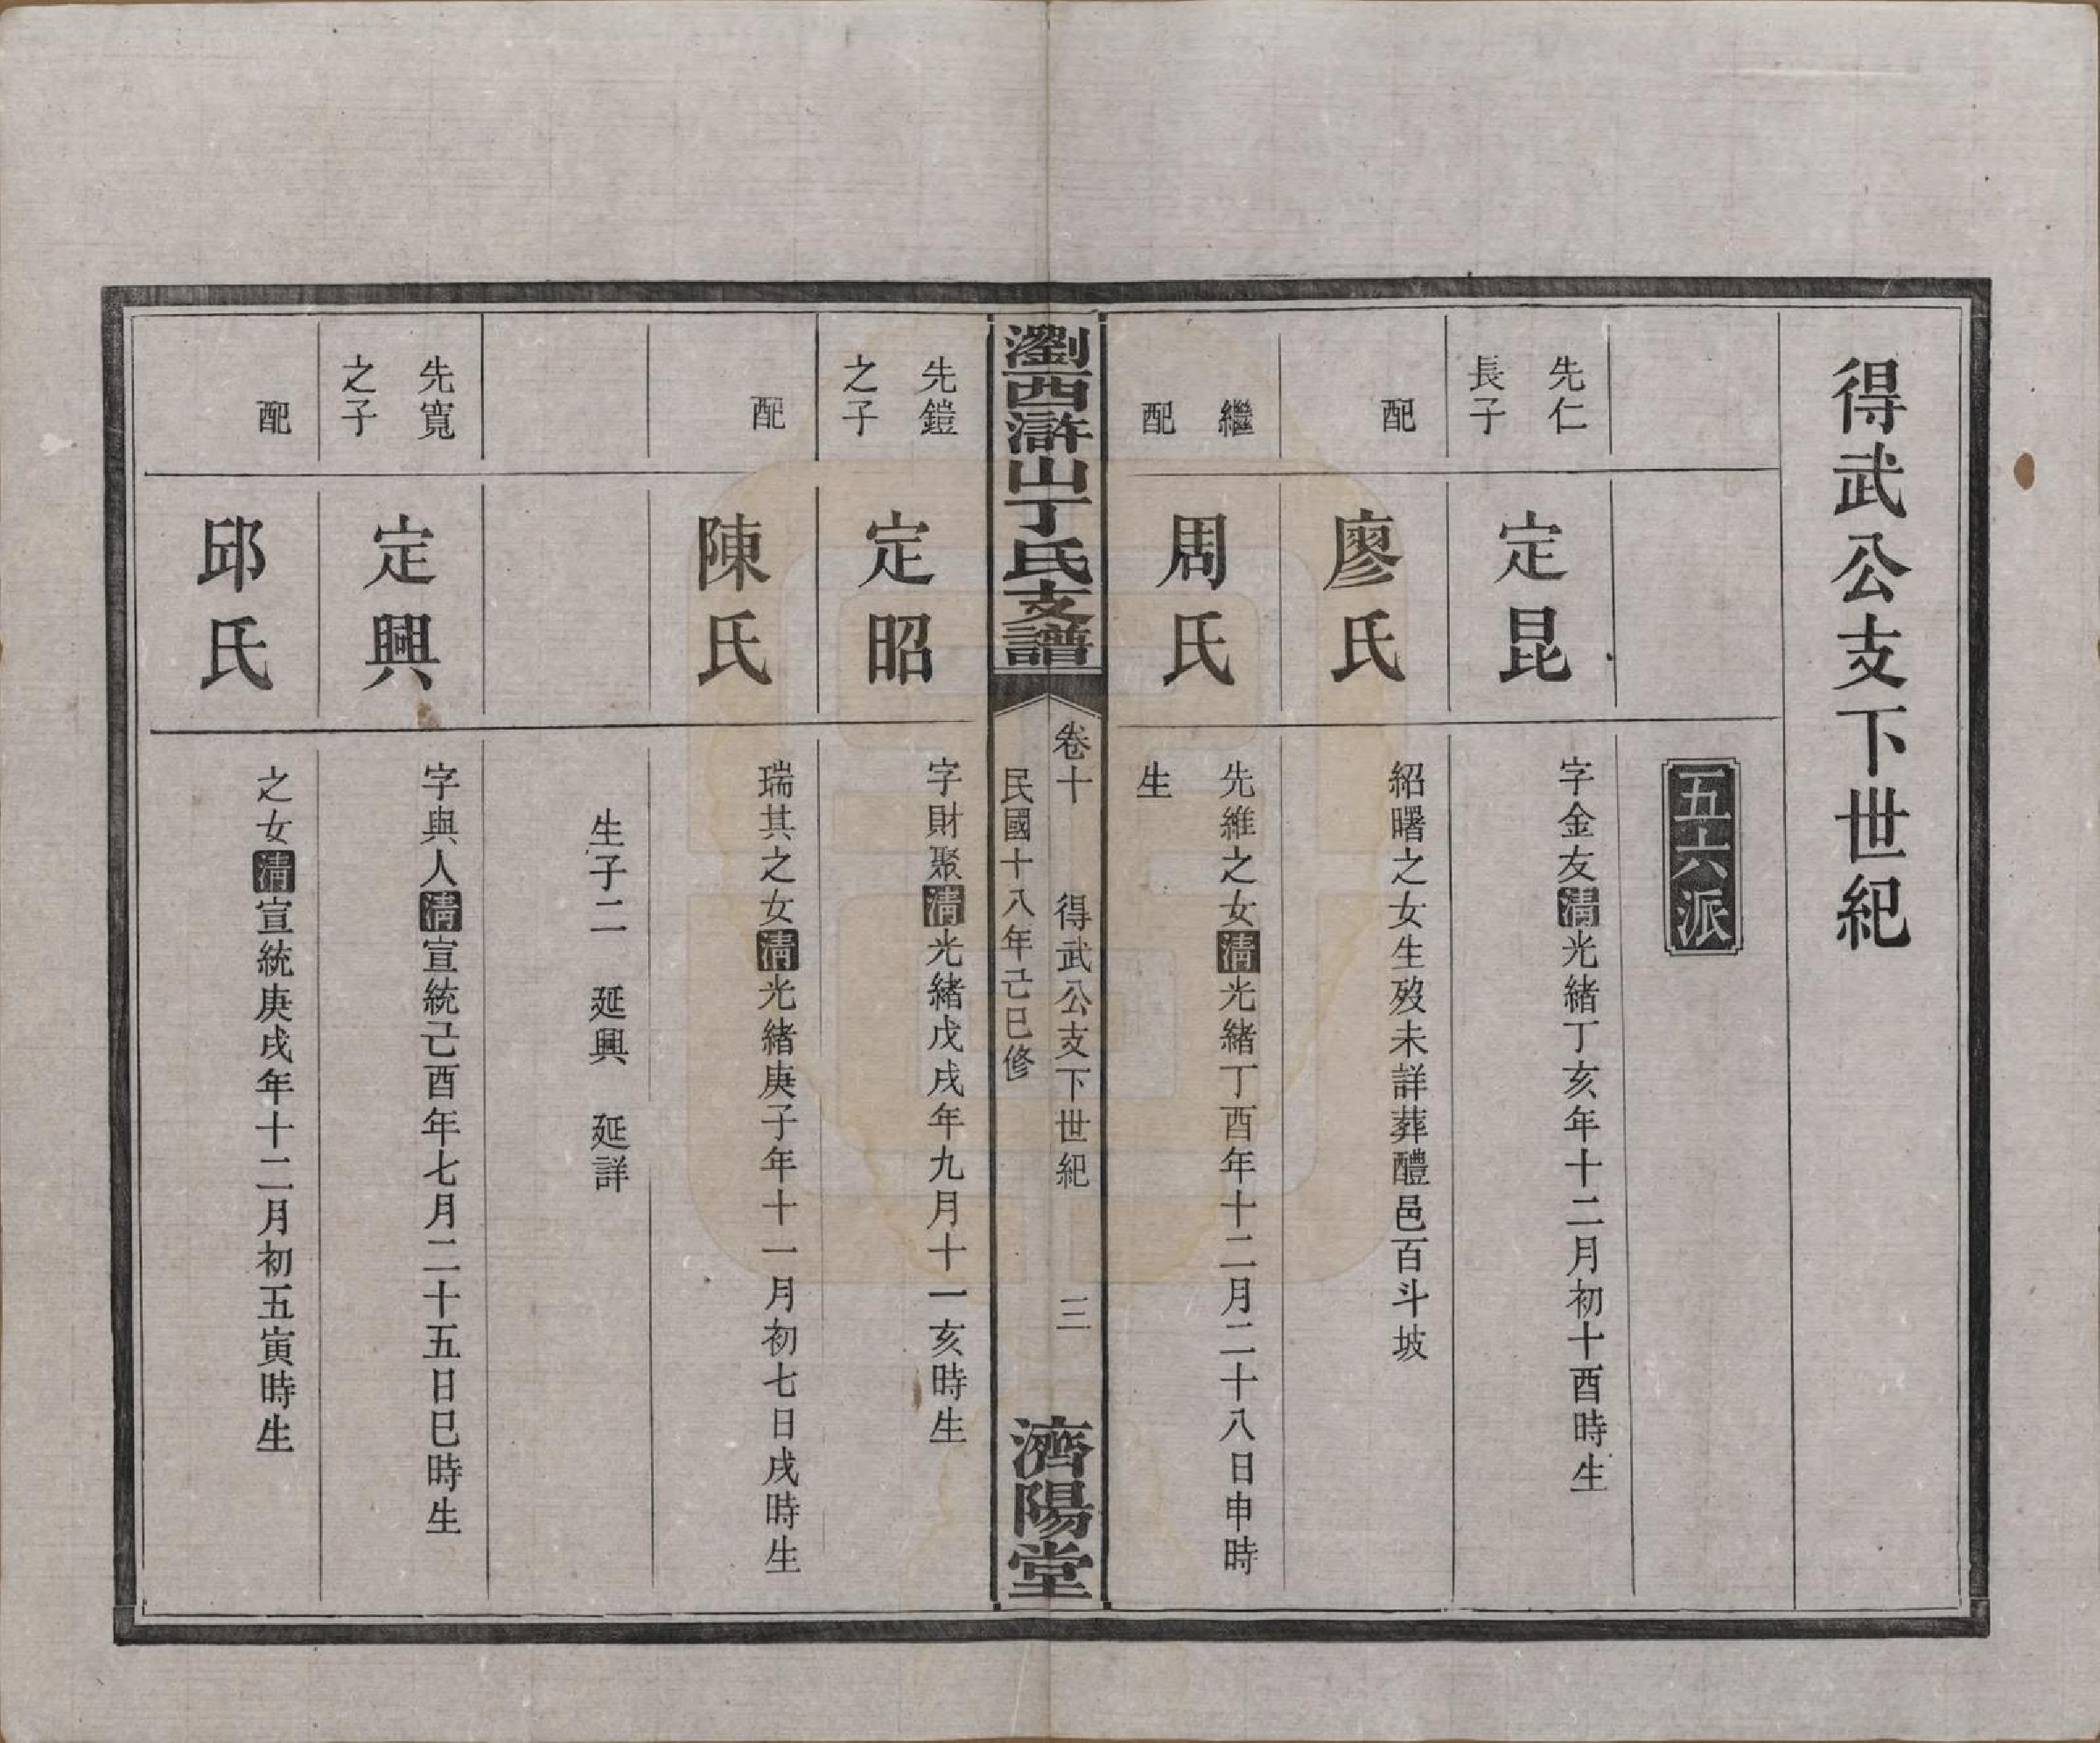 得武公支下世紀
五六派
先仁
長子
定昆
字金友清光緒丁亥年十二月初十酉時生
配
廖氏
紹曙之女生歿未詳葬醴邑百斗坡
繼
配
周氏
先維之女清光緒丁酉年十二月二十八日申時
生
瀏西滸山丁氏支譜
卷十 得武公支下世紀 三
民國十八年己巳修
濟陽堂
先鎧
之子
定昭
字財聚清光緒戊戌年九月十一亥時生
配
陳氏
瑞其之女清光緒庚子年十一月初七日戌時生
生子二 延興 延詳
先寬
之子
定興
字與人清宣統己酉年七月二十五日巳時生
配
邱氏
之女清宣統庚戌年十二月初五寅時生